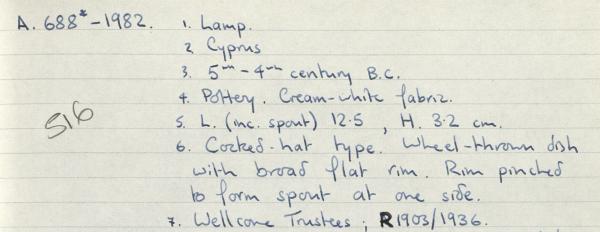 A. 688*-1982. 1. Lamp.
2 Cyprus
3. 5th-4th century B.C.
4. Pottery. Cream-white fabric.
516
5. L. (inc. spout) 12.5, H. 3.2 cm.
6. Cocked-hat type. Wheel-thrown dish
with broad flat rim. Rim pinched
to form spout at one side.
7. Wellcome Trustees; R1903/1936.